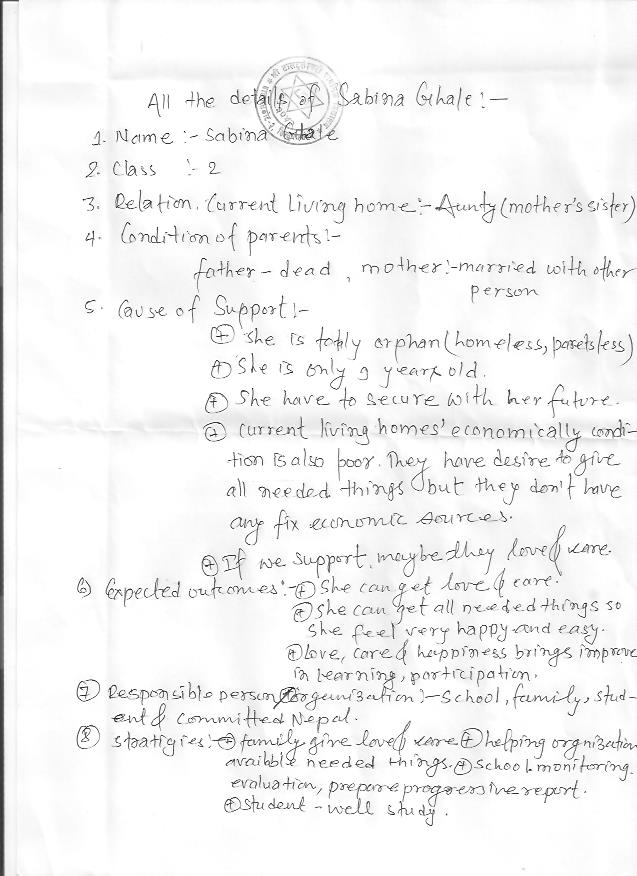 All the details of Sabina Ghale:-
1. Name :- Sabina Ghale
2. Class :- 2
3. Relation. Current living home:- Aunty (mother's sister)
4. Condition of parents:-
father - dead , mother:- married with other
person
5. Cause of Support:-
+ She is totly orphan (homeless, paretsless)
+ She is only 9 years old.
+ She have to secure with her future.
+ current living homes' economically condi-
tion is also poor. They have desire to give
all needed things but they don't have
any fix economic sources.
+ If we support, maybe they love & care.
6) Expected outcomes:- + She can get love & care.
+ She can get all needed things so
she feel very happy and easy.
+ Love, care & happiness brings improve
in learning, participation.
7 Responsible person/organization:- School, family, stud-
ent & Committed Nepal.
8 Stratigies:- + family give love & care + helping orgnization
avaibble needed things. + School - monitoring,
evaluation, prepare progressive report.
+ student - well study.